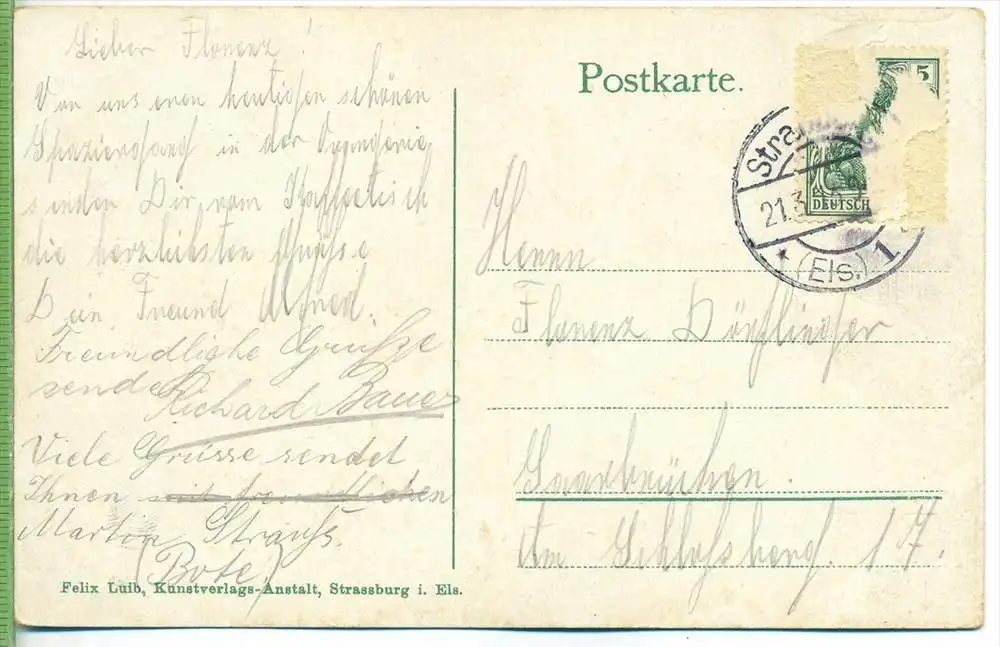 Lieber Florenz!
Von uns eren heutigen schönen
Spaziergang in der Orangerie
senden Dir vom Kaffeetisch
die herzlichsten Grüsse
Dein Freund Alfred.
Freundliche Grüsse
sendet
Richard Bauer
Viele Grüsse sendet
Ihnen mit freundlichen
Martin Strauss.
(Bote)
Felix Luib, Kunstverlags-Anstalt, Strassburg i. Els.
Postkarte.
5
DEUTSCH
Stra
21.3
* (Els.) 1
Herrn
Florenz Dörflinger
Saarbrücken.
Am Schlossberg 17.